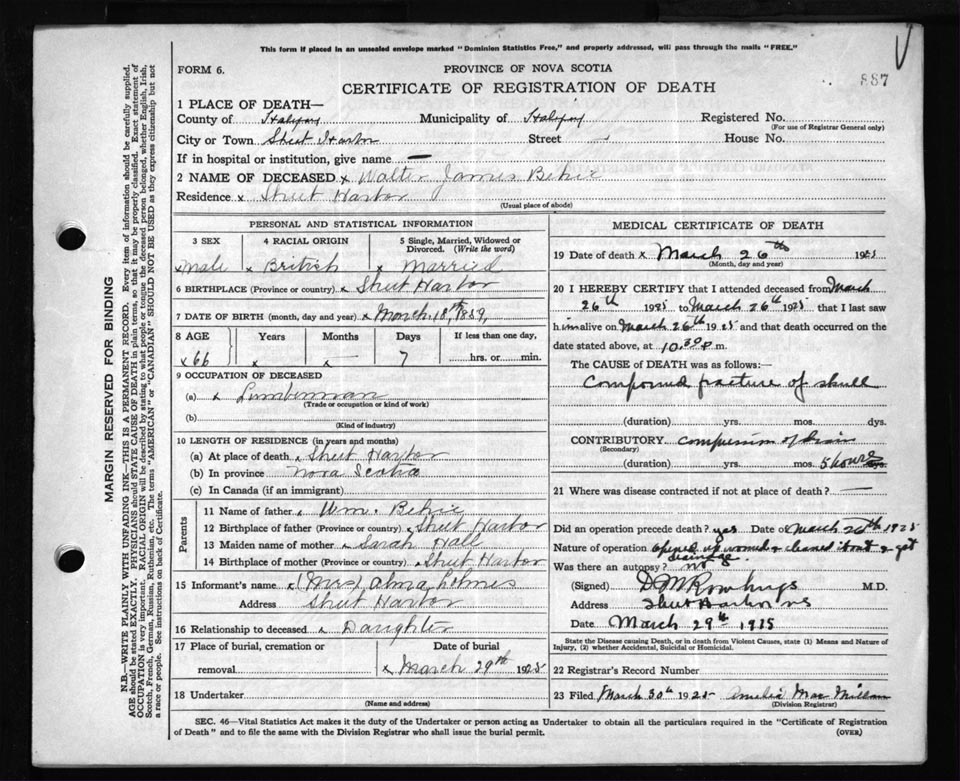 This form if placed in an unsealed envelope marked "Dominion Statistics Free," and properly addressed, will pass through the mails "FREE."
FORM 6.
PROVINCE OF NOVA SCOTIA
887
CERTIFICATE OF REGISTRATION OF DEATH
1 PLACE OF DEATH—
County of Halifax Municipality of Halifax Registered No.
(For use of Registrar General only)
City or Town Sheet Harbor Street House No.
If in hospital or institution, give name —
2 NAME OF DECEASED x Walter James Behie
Residence x Sheet Harbor
(Usual place of abode)
PERSONAL AND STATISTICAL INFORMATION
3 SEX 4 RACIAL ORIGIN 5 Single, Married, Widowed or Divorced. (Write the word)
x Male x British x Married
6 BIRTHPLACE (Province or country) x Sheet Harbor
7 DATE OF BIRTH (month, day and year) x March, 18th, 1859,
8 AGE Years Months Days If less than one day,
x 66 x x — 7 hrs. or min.
9 OCCUPATION OF DECEASED
(a) x Lumberman
(Trade or occupation or kind of work)
(b)
(Kind of industry)
10 LENGTH OF RESIDENCE (in years and months)
(a) At place of death x Sheet Harbor
(b) In province Nova Scotia
(c) In Canada (if an immigrant)
Parents
11 Name of father x Wm. Behie
12 Birthplace of father (Province or country) x Sheet Harbor
13 Maiden name of mother x Sarah Hall
14 Birthplace of mother (Province or country) x Sheet Harbor
15 Informant's name x (Mrs) Alma Holmes
Address Sheet Harbor
16 Relationship to deceased x Daughter
17 Place of burial, cremation or removal Date of burial
x March 29th 1925
18 Undertaker
(Name and address)
MEDICAL CERTIFICATE OF DEATH
19 Date of death x March 26th 1925
(Month, day and year)
20 I HEREBY CERTIFY that I attended deceased from March
26th 1925 to March 26th 1925 that I last saw
him alive on March 26th 1925 and that death occurred on the
date stated above, at 10.30 P m.
The CAUSE OF DEATH was as follows:
Compound fracture of skull
(duration) yrs. mos. dys.
CONTRIBUTORY compression of brain
(Secondary)
(duration) yrs. mos. 5 hours dys.
21 Where was disease contracted if not at place of death? —
Did an operation precede death? yes Date of March 26th 1925
Nature of operation opened up wound & cleaned it out & got
drainage
Was there an autopsy? no
(Signed) M.D.
Address Sheet Harbor NS
Date March 29th 1925
State the Disease causing Death, or in death from Violent Causes, state (1) Means and Nature of
Injury, (2) whether Accidental, Suicidal or Homicidal.
22 Registrar's Record Number
23 Filed March 30th 1925 Amelia MacMillan
(Division Registrar)
SEC. 46—Vital Statistics Act makes it the duty of the Undertaker or person acting as Undertaker to obtain all the particulars required in the "Certificate of Registration
of Death" and to file the same with the Division Registrar who shall issue the burial permit.
(OVER)
MARGIN RESERVED FOR BINDING
N.B.—WRITE PLAINLY WITH UNFADING INK—THIS IS A PERMANENT RECORD. Every item of information should be carefully supplied.
AGE should be stated EXACTLY. PHYSICIANS should STATE CAUSE OF DEATH in plain terms, so that it may be properly classified. Exact statement of
OCCUPATION is very important. RACIAL ORIGIN will be described by stating to what people or tongue the deceased person belonged, whether English, Irish,
Scotch, French, German, Russian, Ruthenian, etc. The terms "AMERICAN" or "CANADIAN" SHOULD NOT BE USED as they express citizenship but not
a race or people. See instructions on back of Certificate.